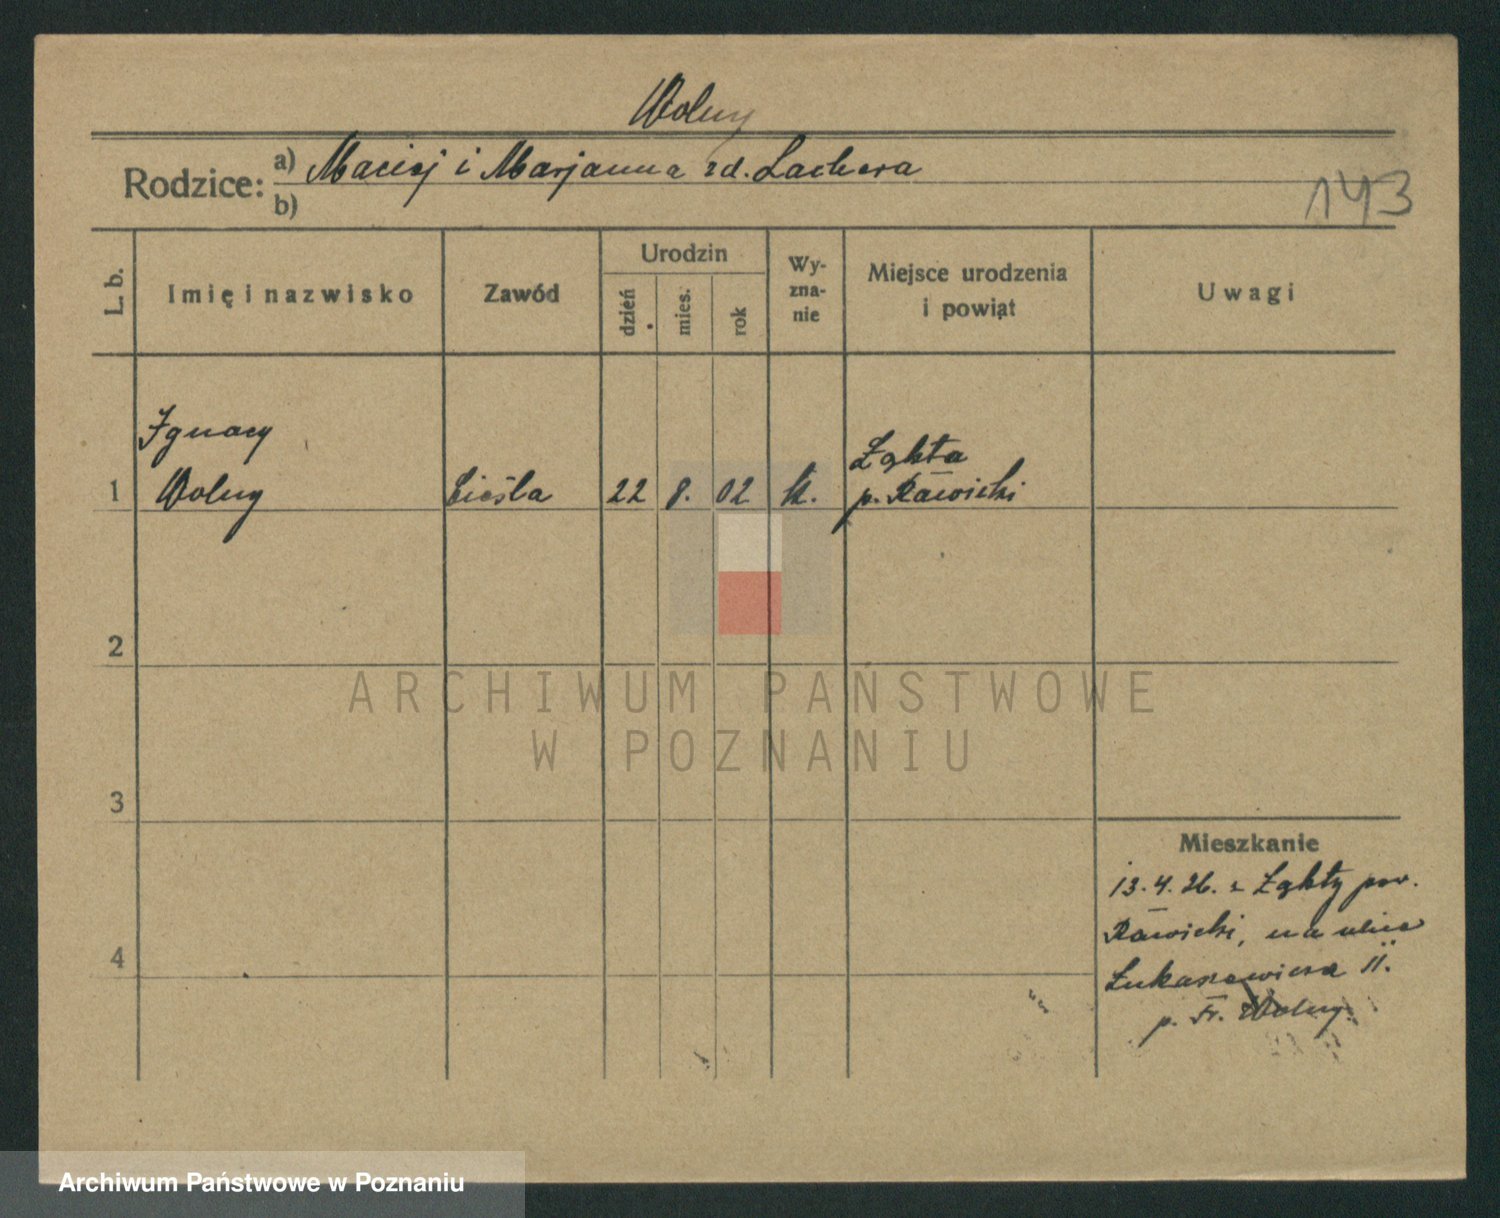 Wolny
Rodzice: a) Maciej i Marjanna zd. Lachera
b)
143
L. b.
Imię i nazwisko
Zawód
Urodzin
dzień
mies.
rok
Wy-
zna-
nie
Miejsce urodzenia
i powiąt
Uwagi
Ignacy
Łąkta
1 Wolny Cieśla 22 8. 02 k. p. Rawicki
2
ARCHIWUM PAŃSTWOWE
W POZNANIU
3
Mieszkanie
13.4.26. z Łąkty pow.
Rawicki, na ulice
4
Łukaszewicza 11.
p. Fr. Wolny.
Archiwum Państwowe w Poznaniu